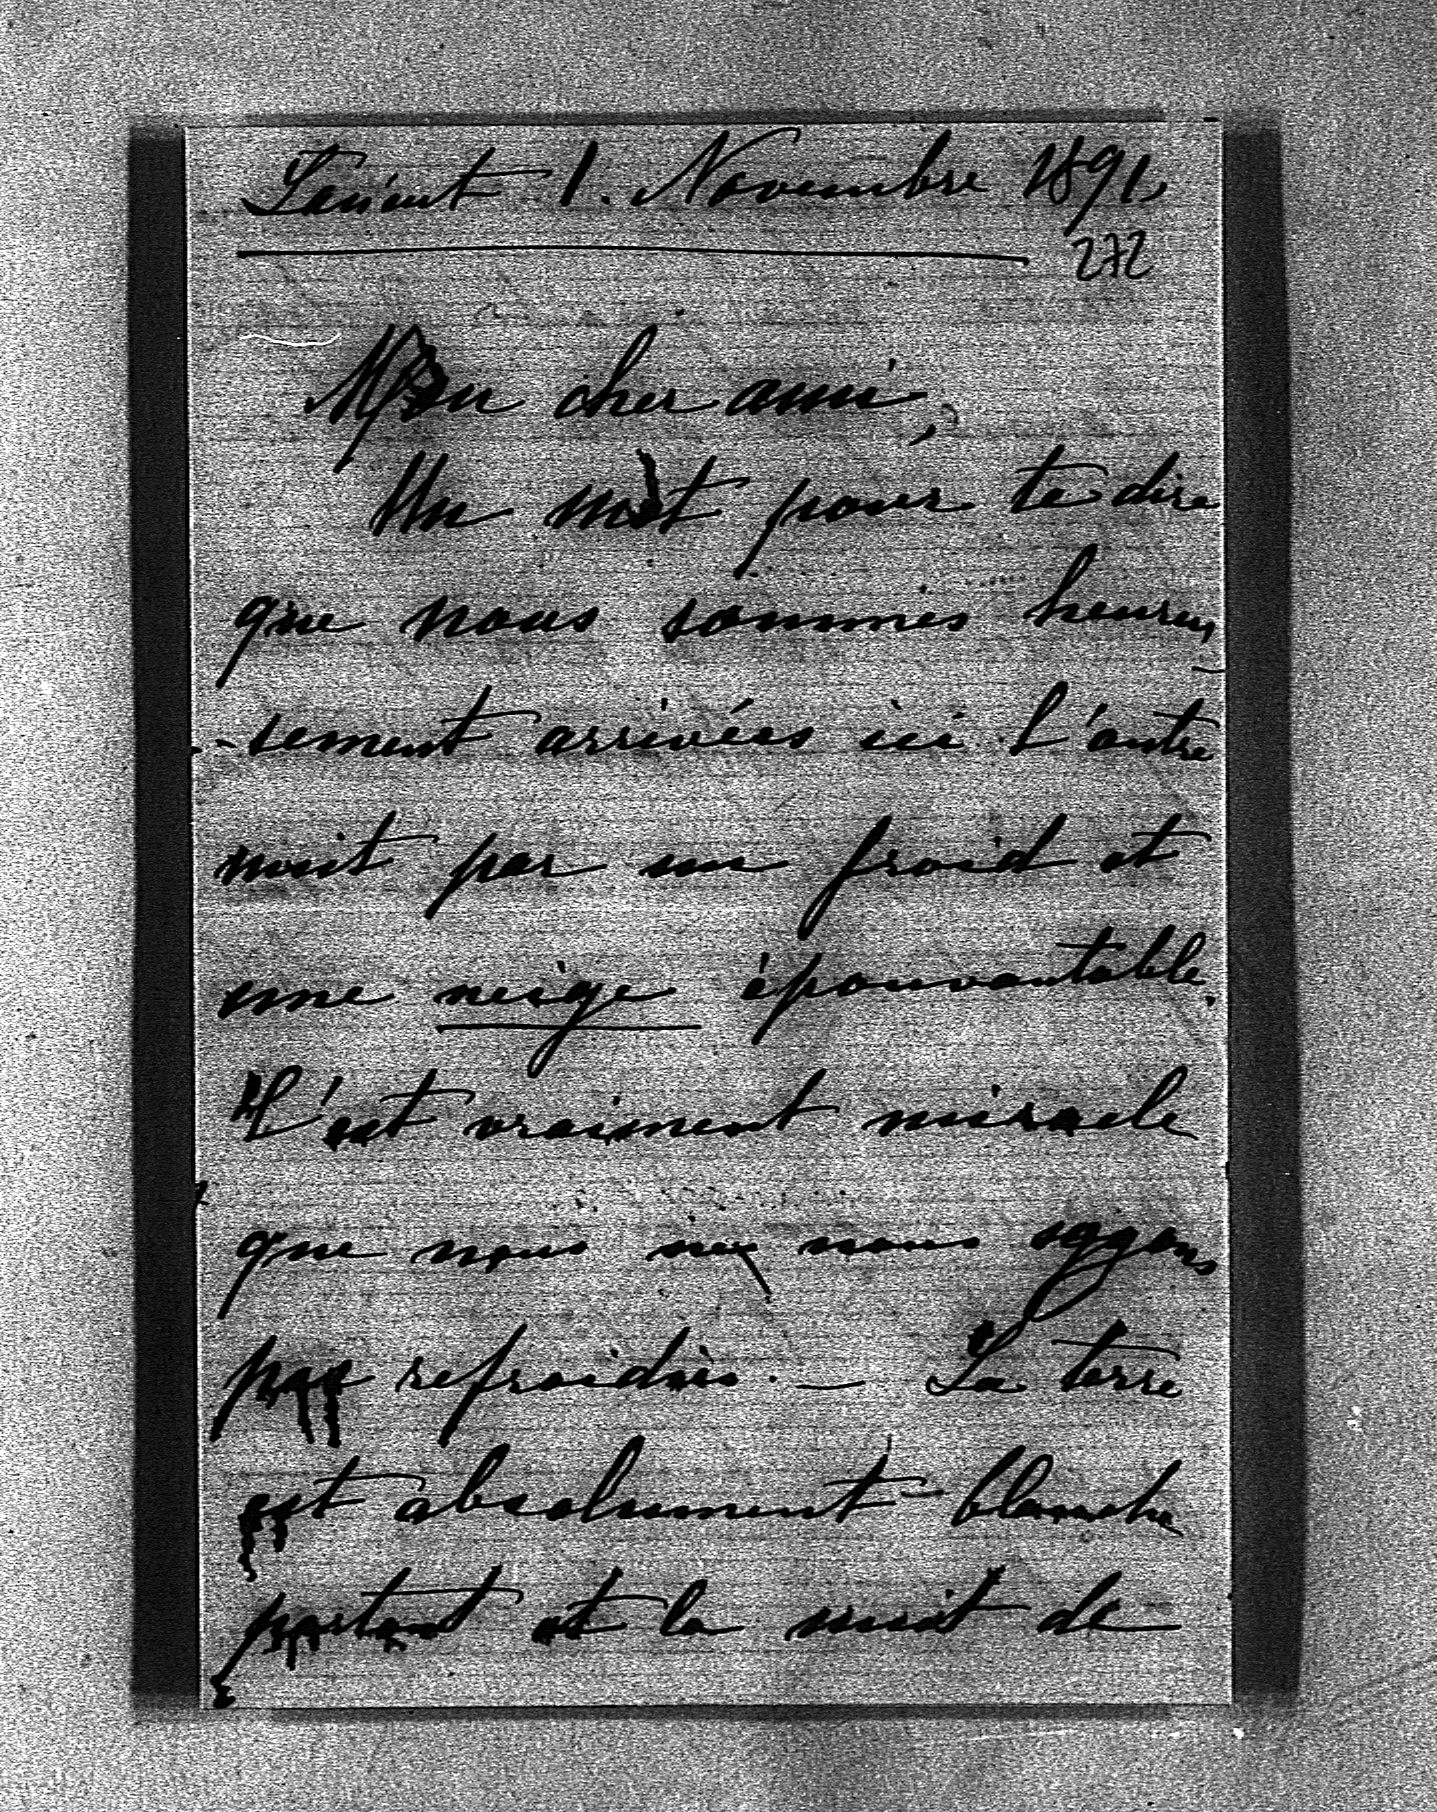 1. Novembre 1891.
272
Mon cher ami,
Un mot pour te dire
que nous sommes heureu
-sement arrivées ici l'autre
nuit par un froid et
une neige épouvantable.
C'est vraiment miracle
que nous ne nous soyons
pas refroidies. — La terre
est absolument blanche
partout et la nuit de